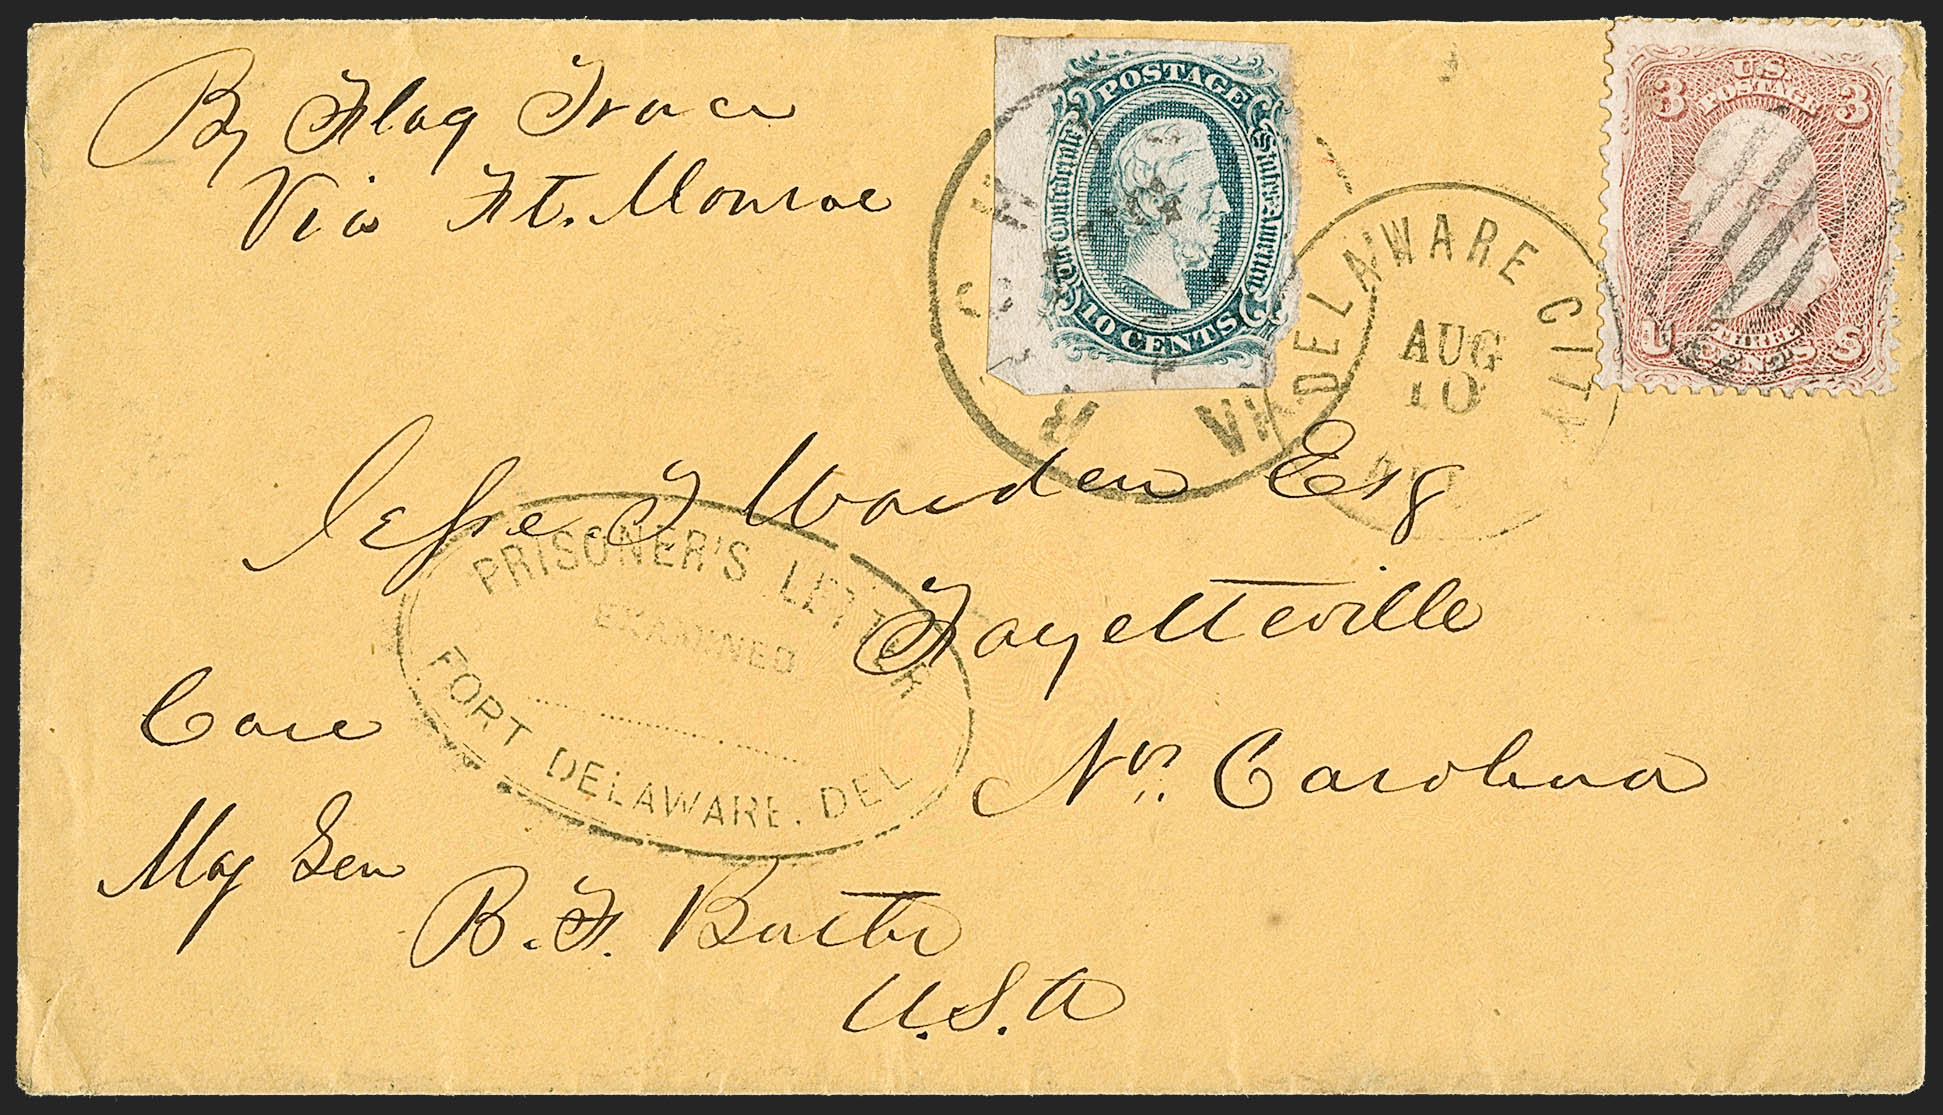 By Flag Truce
Via Ft. Monroe
POSTAGE
The Confederate States America
10 CENTS
U.S.
POSTAGE
3 3
U THREE S
CENTS
RICHMOND
VA
DELAWARE CITY
AUG
10
DEL
Jesse T Warden Esq
Fayetteville
No. Carolina
PRISONER'S LETTER
EXAMINED
FORT DELAWARE. DEL
Care
Maj Gen
B. F. Butler
U.S.A